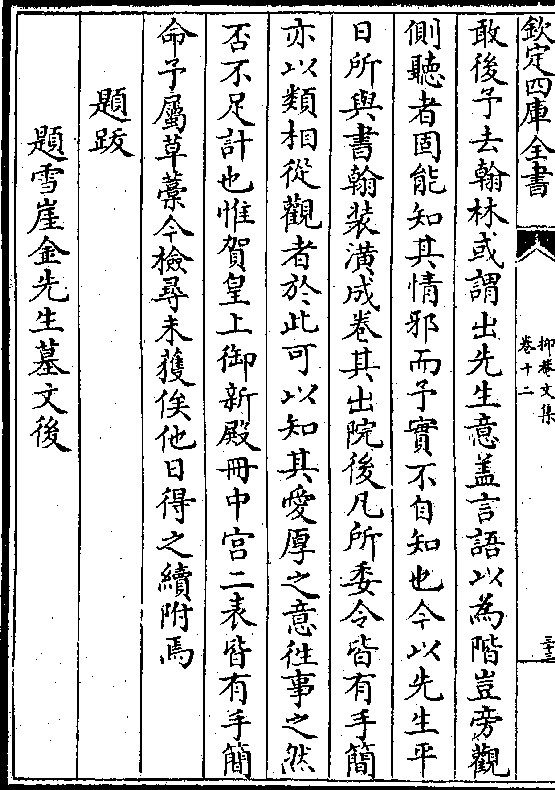 欽定四庫全書
抑菴文集
卷十二
三十三
敢後予去翰林或謂出先生意盖言語以為階豈旁觀
側聽者固能知其情邪而予實不自知也今以先生平
日所與書翰装潢成卷其出院後凡所委令皆有手簡
亦以類相從觀者於此可以知其愛厚之意徃事之然
否不足計也惟賀皇上御新殿冊中宫二表皆有手簡
命予屬草藳今檢尋未獲俟他日得之續附焉
題跋
題雪崖金先生墓文後